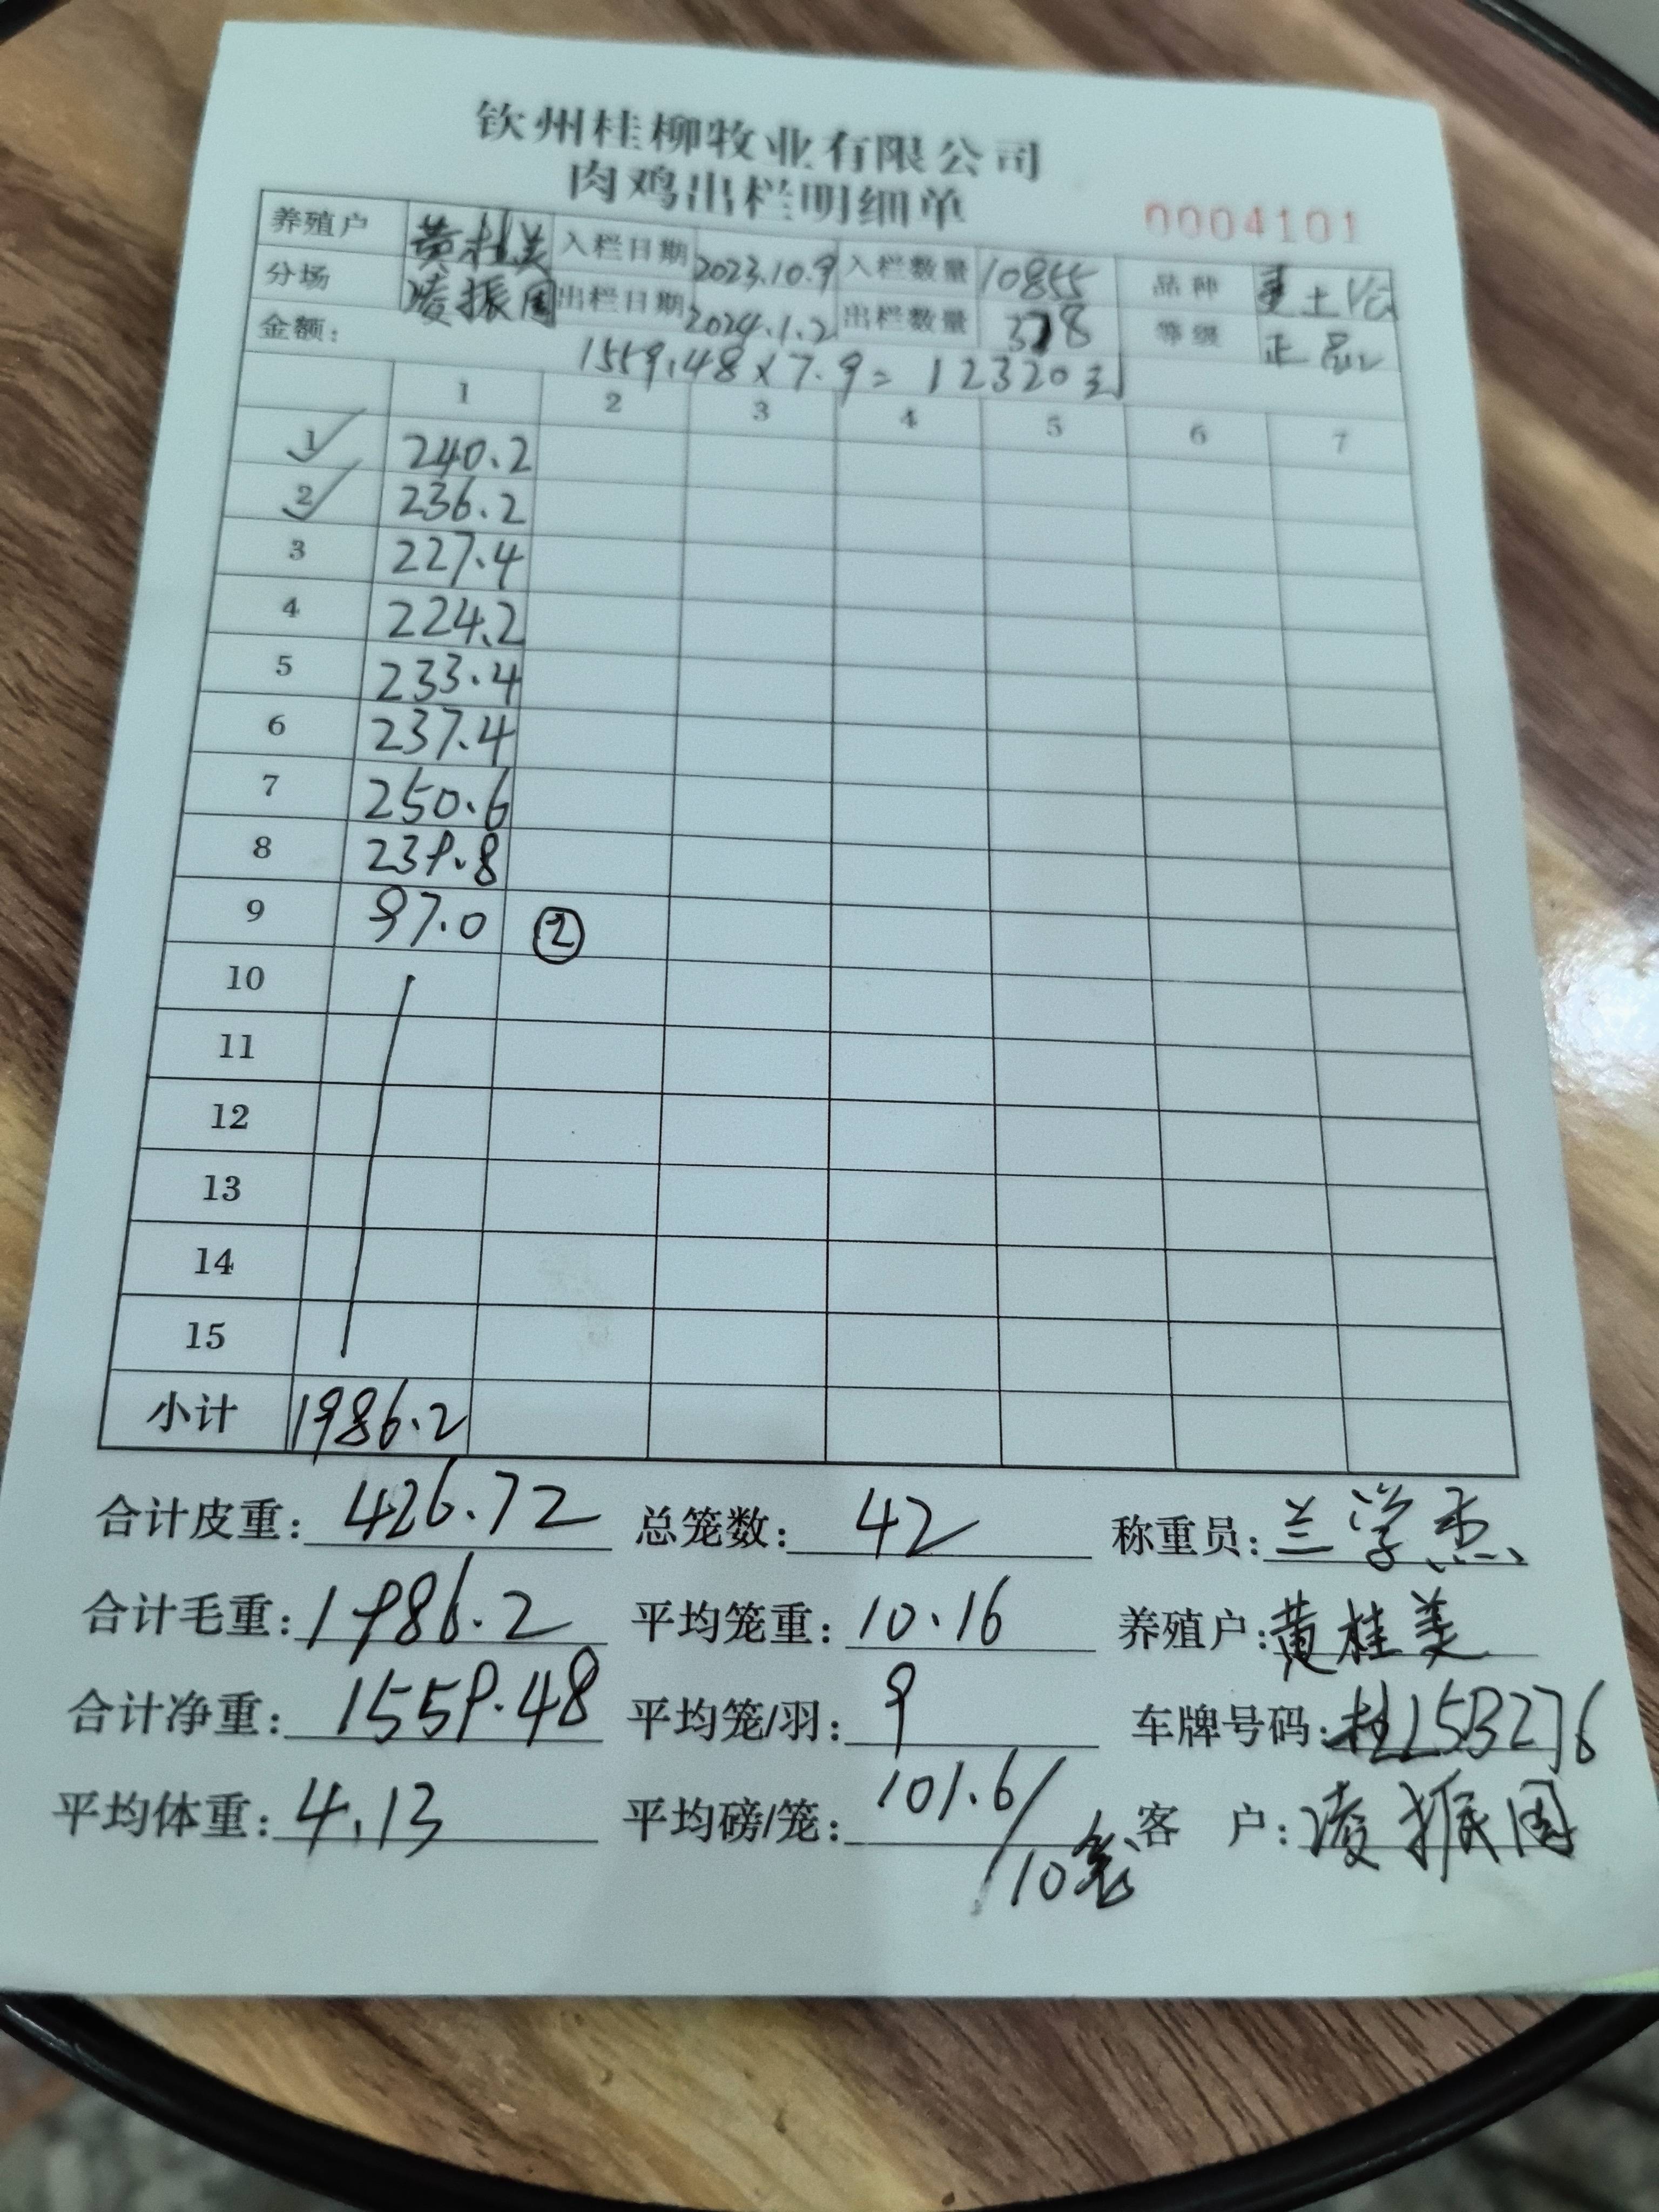 钦州桂柳牧业有限公司
肉鸡出栏明细单
0004101
养殖户 黄桂美 入栏日期 2023.10.9 入栏数量 10855 品种 土
分场 凌振国 出栏日期 2024.1.2 出栏数量 378 等级 正品
金额: 1559.48×7.9=12320元
1 2 3 4 5 6 7
1 240.2
2 236.2
3 227.4
4 224.2
5 233.4
6 237.4
7 250.6
8 239.8
9 97.0 ②
10
11
12
13
14
15
小计 1986.2
合计皮重: 426.72 总笼数: 42 称重员: 兰学杰
合计毛重: 1986.2 平均笼重: 10.16 养殖户: 黄桂美
合计净重: 1559.48 平均笼/羽: 9 车牌号码: 桂L53276
平均体重: 4.13 平均磅/笼: 101.6/10笼 客 户: 凌振国